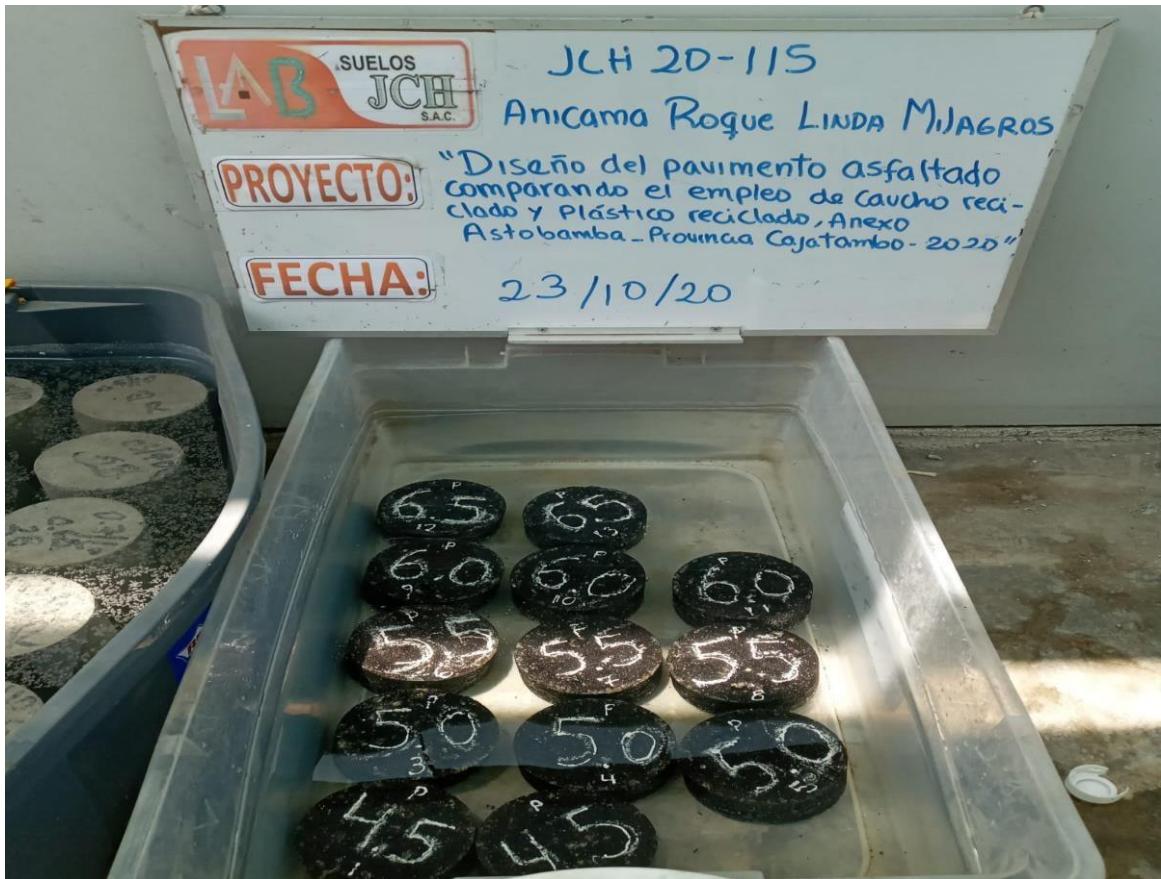 LAB SUELOS JCH S.A.C.
JCH 20-115
Anicama Roque LINDA MILAGROS
PROYECTO:
"Diseño del pavimento asfaltado
comparando el empleo de caucho reci-
clado y Plástico reciclado, Anexo
Astobamba - Provincia Cajatambo - 2020"
FECHA:
23/10/20
P P
6.5 6.5
12 13
P P P
6.0 6.0 6.0
9 10 11
P P P
5.5 5.5 5.5
6 7 8
P P P
5.0 5.0 5.0
3 4 5
P P
4.5 4.5
1